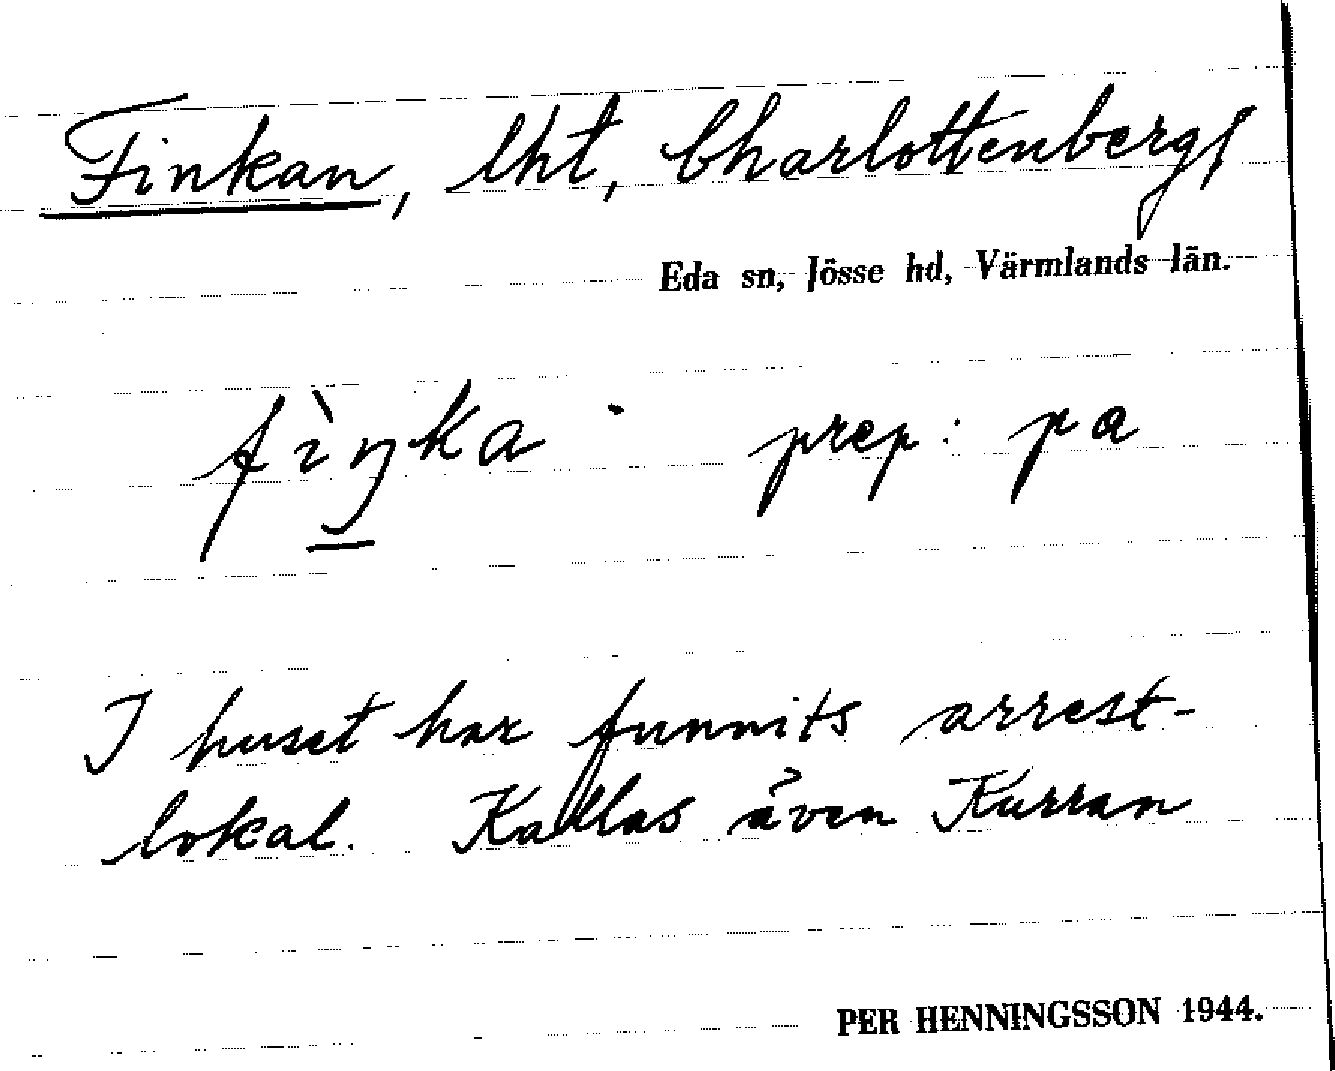 Finkan, lht, Charlottenbergs
Eda sn, Jösse hd, Värmlands län.
fìŋka prep: pa
I huset har funnits arrest-
lokal. Kallas även Kurran
PER HENNINGSSON 1944.